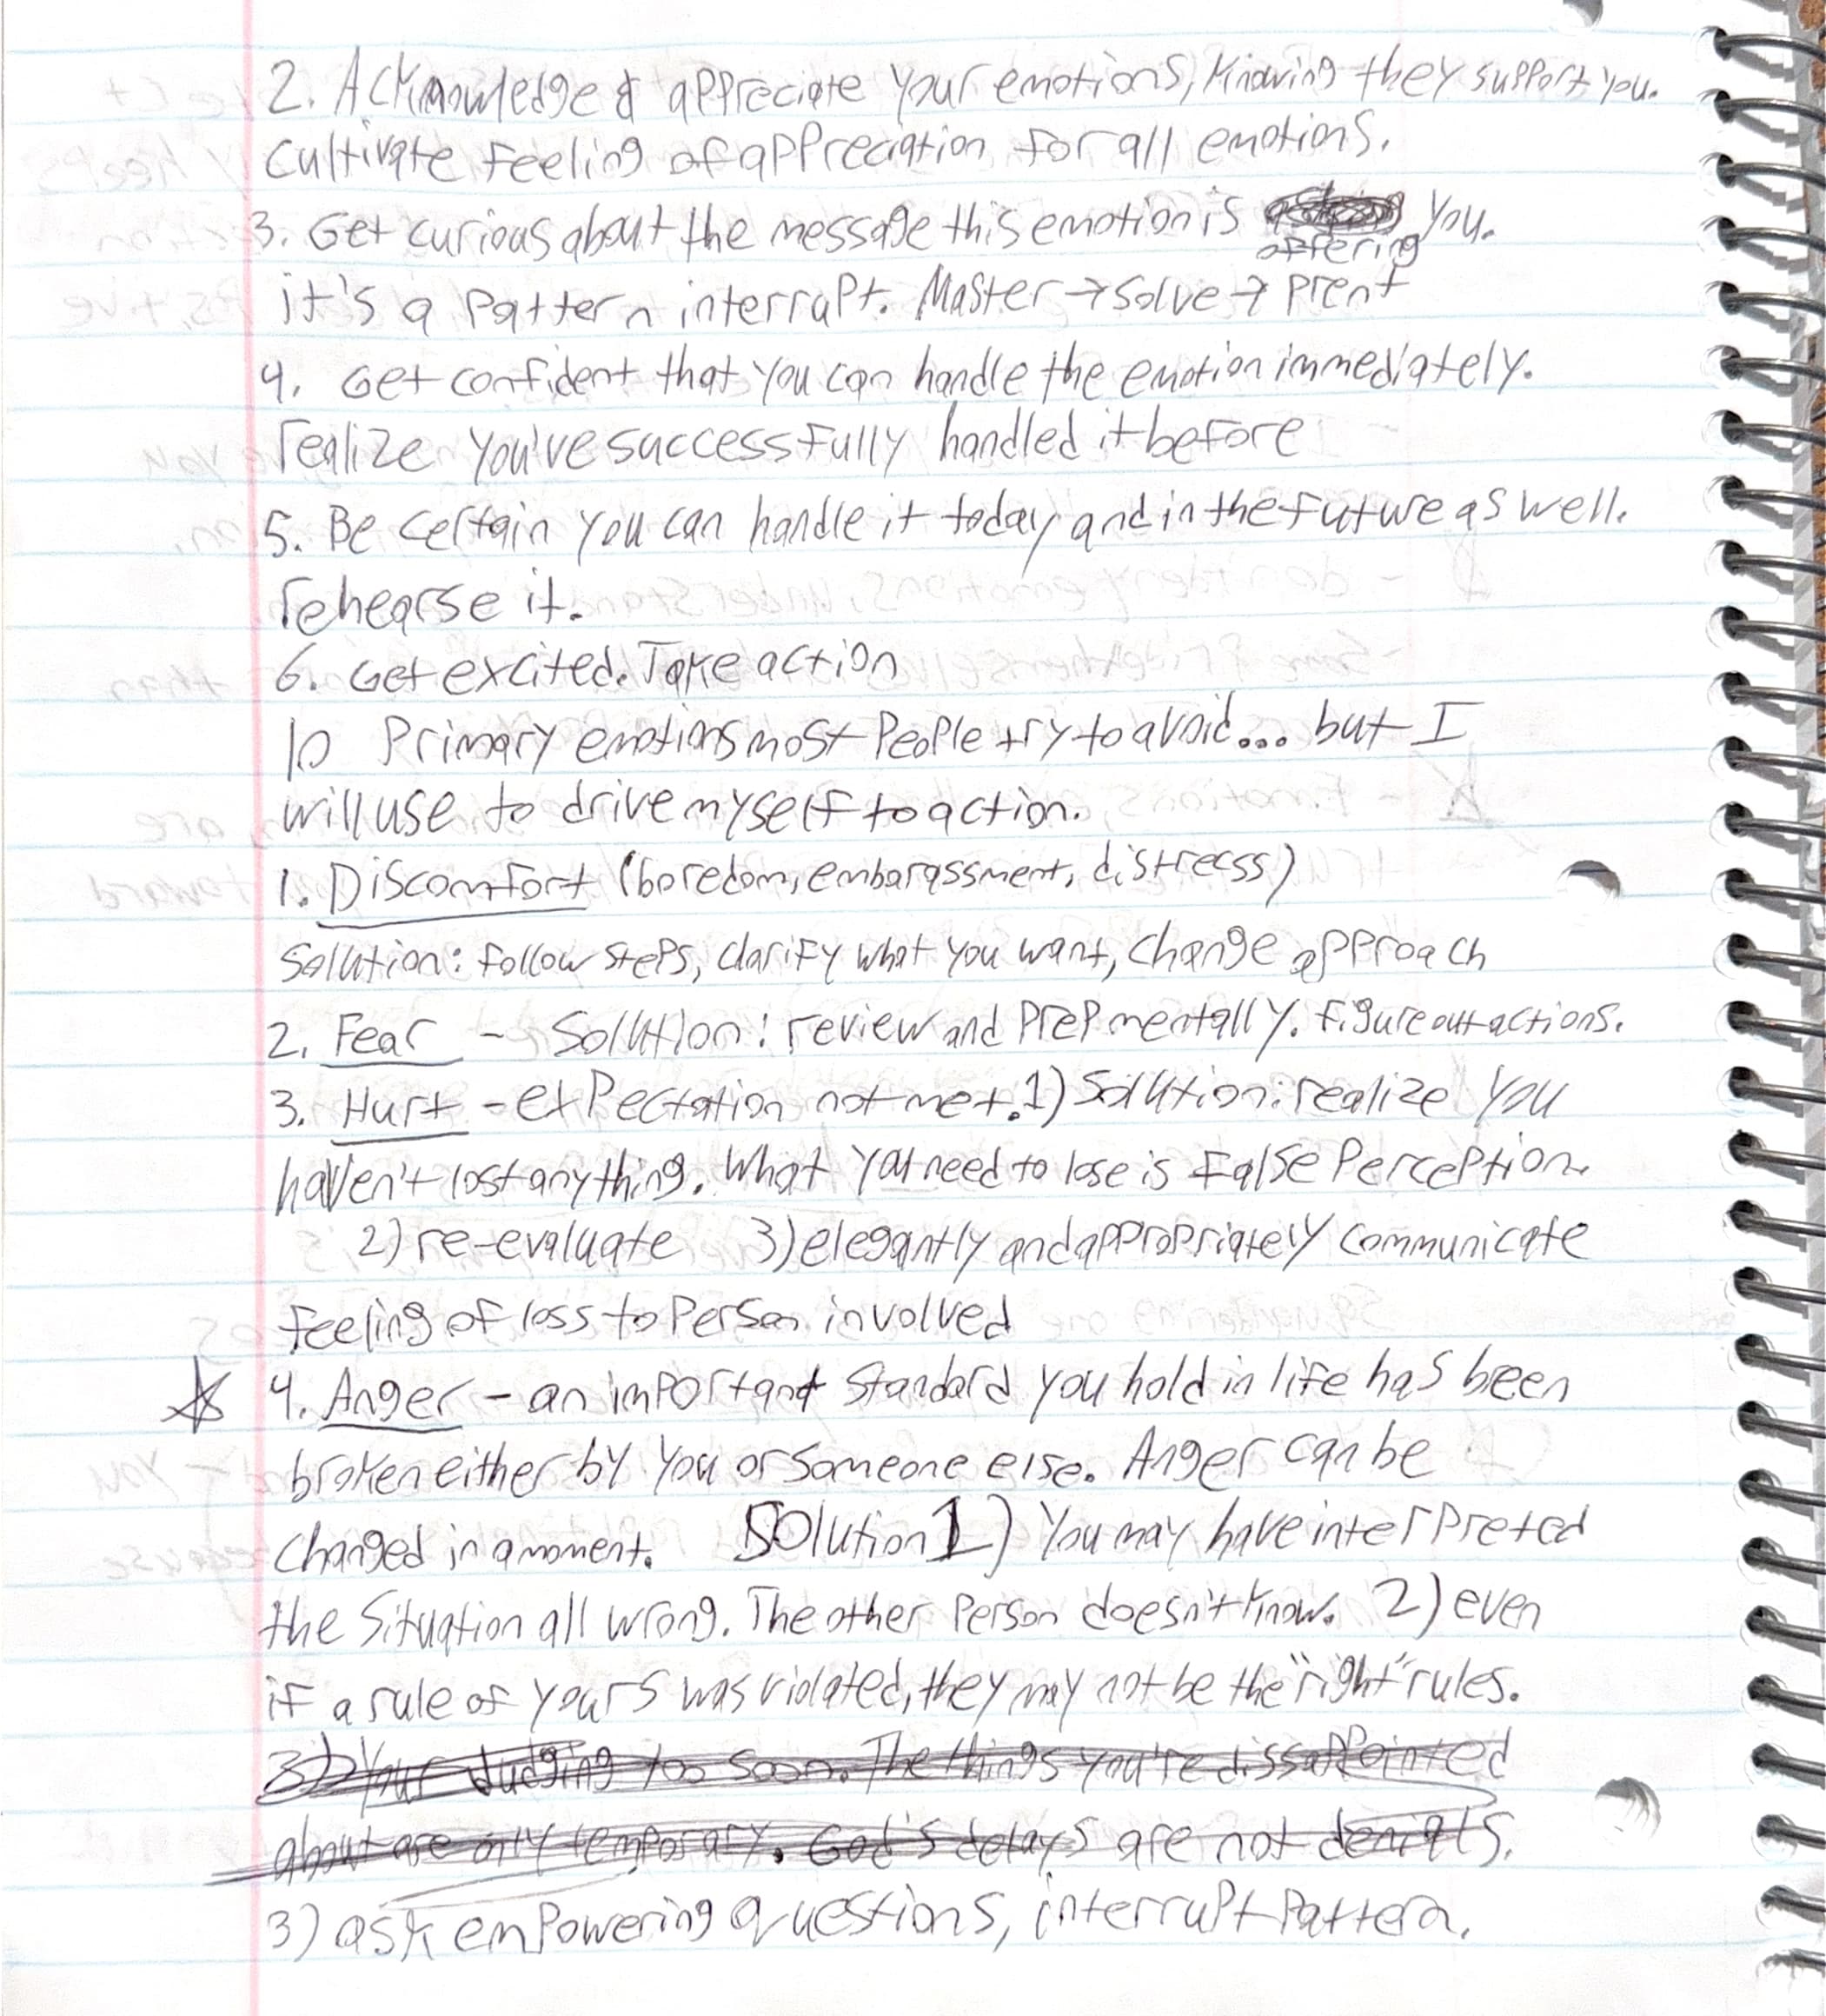 2. Acknowledge & appreciate your emotions, knowing they support you.
Cultivate feeling of appreciation for all emotions.
3. Get curious about the message this emotion is offering you.
it's a pattern interrupt. Master → solve → prent
4. Get confident that you can handle the emotion immediately.
realize you've successfully handled it before
5. Be certain you can handle it today and in the future as well.
rehearse it.
6. Get excited. Take action
10 Primary emotions most people try to avoid... but I
will use to drive myself to action.
1. Discomfort (boredom, embarassment, distrecss)
Solution: follow steps, clarify what you want, change approach
2. Fear - Solution: review and prep mentally. figure out actions.
3. Hurt - expectation not met. 1) Solution: realize you
haven't lost anything. What you need to lose is false perception.
2) re-evaluate 3) elegantly and appropriately communicate
feeling of loss to person involved
☆ 4. Anger - an important standard you hold in life has been
broken either by you or someone else. Anger can be
changed in a moment. Solution 1) You may have interpreted
the situation all wrong. The other person doesn't know. 2) even
if a rule of yours was violated, they may not be the "right" rules.
3) Your judging too soon. The things you're dissappointed
about are only temporary. God's delays are not denials.
3) ask empowering questions, interrupt pattern.